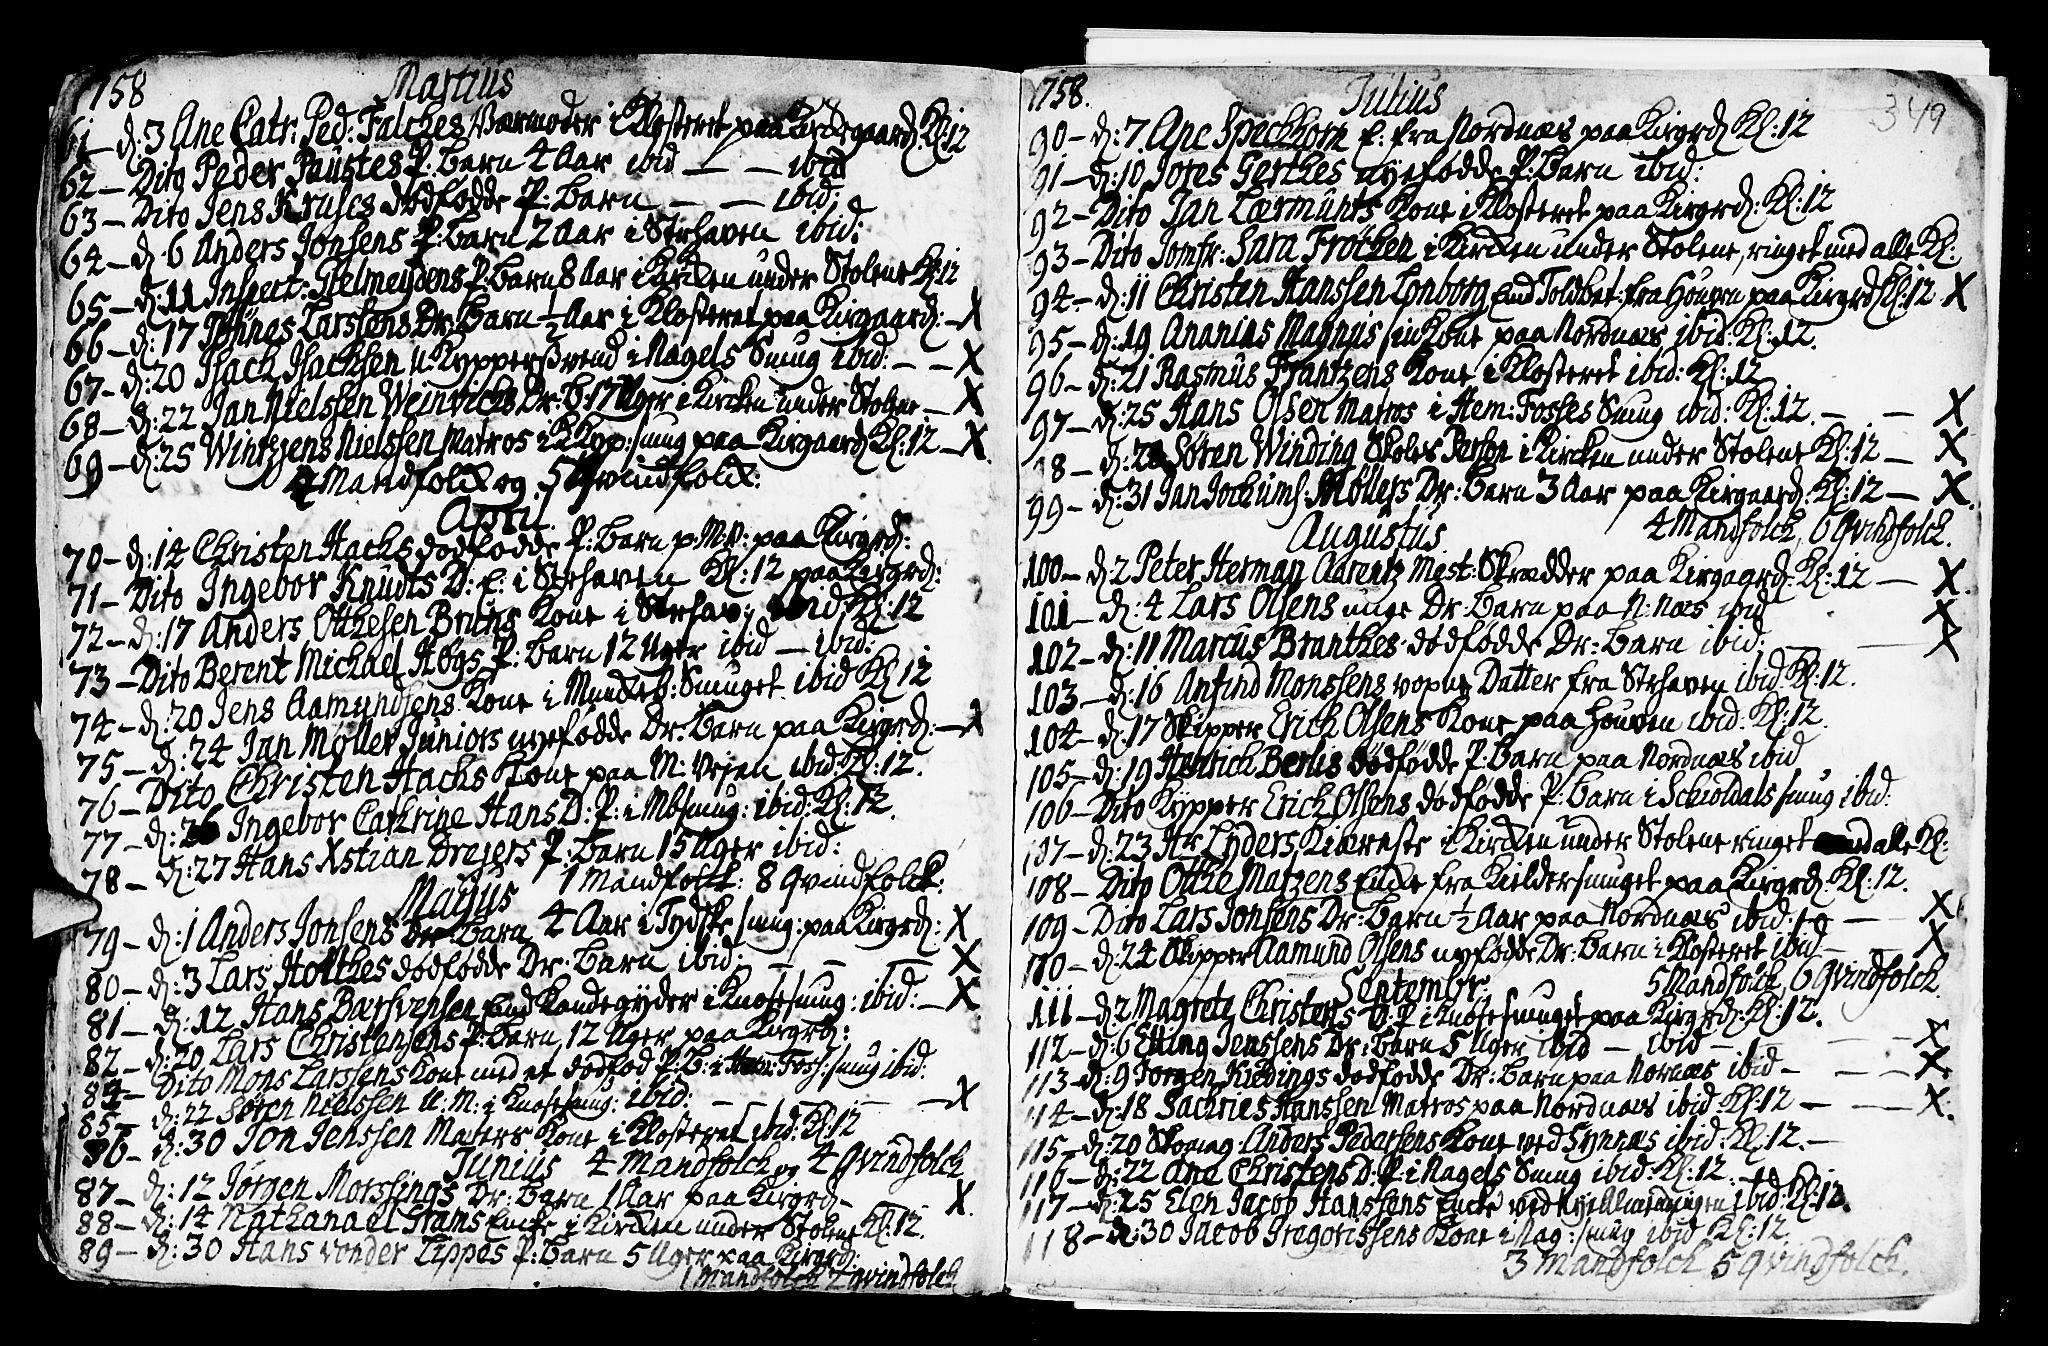 1758 Martius
61 – d: 3 Ane Catr: Ped: Falches Vármoder i Klosteret paa Kirgaard: Kl: 12
62 – Dito Peder Paustes P: barn 4 Aar ibid – – ibid
63 – Dito Jens Kruses dødfødde P: barn – – ibid:
64 – d: 6 Anders Jonsens P: barn 2 Aar i Strhaven ibid:
65 – d: 11 Inspect: Stelmeydens P: barn 8 Aar i Kirken under Stolene Kl: 12
66 – d: 17 Tønnes Larssens Dr: barn ½ Aar i Klosteret paa Kirgaard: – X
67 – d: 20 Isach Isachsen u: Kyppersvend i Nagels Smug ibid: – – X
68 – d: 22 Jan Nielssen Weinvichs Dr: b: 17 Uger i Kircken under Stolene – X
69 – d: 25 Wintzens Nielssen Matros i Kyp: smug paa Kirgaard Kl: 12 – X
4 Mandfolk og 5 Qvindfolk:
April
70 – d: 14 Christen Hachs dødfødde P: barn p: M: V: paa Kirgrd:
71 – Dito Ingebor Knudts D: E: i Strhaven Kl: 12 paa Kirgrd:
72 – d: 17 Anders Otthesen Bruhns Kone i Strhav: ibid: Kl: 12
73 – Dito Berent Michael Høgs P: barn 12 Uger ibid – ibid:
74 – d: 20 Jens Aamundsens Kone i Smuget ibid Kl 12
75 – d: 24 Jan Møller Juniors nyefødde Dr: barn paa Kirgrd: – X
76 – Dito Christen Hachs Kone paa M: Vejen ibid: Kl: 12.
77 – d: 26 Ingebor Cathrine Hans D: P: i Mosmug: ibid: Kl: 12.
78 – d: 27 Hans Xstian Drejers P: barn 15 Uger ibid:
Majus 1 Mandfolk: 8 Qvindfolck.
79 – d: 1 Anders Jonsens Dr: barn 4 Aar i Tydske smug: paa Kirgrd: X
80 – d: 3 Lars Holthes dødfødde Dr: barn ibid: – – – X
81 – d: 12 Hans Barsvensen Kandegyder i Knosesmug: ibid: – X
82 – d: 20 Lars Christensens P: barn, 12 Uger paa Kirgrd:
84 – Dito Mons Larssens Kone med et dødfød P: B: i Hem: Foss: smug ibid:
85 – d: 22 Søren Nielssen u: M: i Knosesmug: ibid: – – – X
86 – d: 30 Jon Jenssen Maters Kone i Klosteret ibid: Kl: 12
Junius 4 Mandfolch og 4 Qvindfolch
87 – d: 12 Jørgen Morssings Dr: barn 1 Aar paa Kirgrd – X
88 – d: 14 Nathanael Grams Encke i Kirken under Stolene Kl: 12.
89 – d: 30 Hans vonder Lippes P: barn 5 Uger paa Kirgrd:
1 Mandfolck 2 Qvindfolck
1758. Julius 349
90 – d: 7. Ane Speckhorn E: fra Nordnæs paa Kirgrd Kl: 12
91 – d: 10 Jotes Gerthes nyefødde P: barn ibid:
92 – Dito Jan Lærmunts Kone i Klosteret paa Kirgrd: Kl: 12
93 – Dito Jomfr: Sara Frøchen i Kircken under Stolene, ringet med alle Kl:
94 – d: 11 Christen Hanssen Lønborg Toldbet: fra Houven paa Kirgrd Kl: 12 X
95 – d: 19 Ananias Magnus sin Kone paa Nordnæs ibid Kl: 12.
96 – d: 21 Rasmus Frantzens Kone i Klosteret ibid: Kl: 12
97 – d: 25 Hans Olsen Matros i Hem: Fosses Smug ibid: Kl: 12. – – X
98 – d: 28 Søren Winding Skoles Person i Kircken under Stolene Kl: 12 – X
99 – d: 31 Jan Jochums: Møllers Dr: barn 3 Aar paa Kirgaard: Kl: 12 – X
Augustus 4 Mandfolck, 6 Qvindfolck.
100 – d: 2 Peter Herman Aarentz Mest: Skrædder paa Kirgaard: Kl: 12 – X
101 – d: 4 Lars Olsens unge Dr: barn paa N: Næs ibid X
102 – d: 11 Marcus Branthes dødfødde Dr: barn ibid: – X
103 – d: 16 Anfind Monssens voxne Datter fra Strhaven ibid Kl: 12.
104 – d: 17 Skipper Erich Olsens Kone paa Houven ibid: Kl: 12.
105 – d: 19 Henrich Berlis dødfødde P: barn paa Nordnæs ibid
106 – Dito Kypper Erich Olsens dødfødde P: barn i Schioldals smug ibid:
107 – d: 23 Hr Lyders Kiereste i Kircken under Stolene ringet med alle Kl:
108 – Dito Otthe Matzens Encke fra Kieldersmuget paa Kirgrd: Kl: 12.
109 – Dito Lars Jonsens Dr: barn ½ Aar paa Nordnæs ibid: – X
110 – d: 24 Skipper Aamund Olsens nyefødde Dr: barn i Klosteret ibid – X
Septembr. 5 Mandfolck, 6 Qvindfolck
111 – d: 2 Magrete Christens D: P i Knosesmuget paa Kirgrd: Kl: 12.
112 – d: 6 Elling Jenssens Dr: barn 5 Uger ibid – ibid – – X
113 – d: 9 Jørgen Kiedings dødfødde Dr: barn paa Nornæs ibid – – X
114 – d: 18 Sachries Hanssen Matros paa Nordnæs ibid: Kl: 12 – – X.
115 – d: 20 Skomag: Anders Pedersens Kone ved Synnæs ibid: Kl: 12. –
116 – d: 22 Ane Christens D: P: i Nagels Smug ibid: Kl: 12. –
117 – d: 25 Elen Jacob Hanssens Encke ved Nye Almendingen ibid: Kl: 12.
118 – d: 30 Jacob Gregorissens Kone i Nag: smug ibid Kl: 12.
3 Mandfolck 5 Qvindfolck.